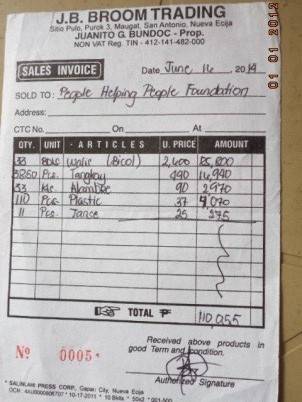 J.B. BROOM TRADING
Sitio Pulo, Purok 3, Maugat, San Antonio, Nueva Ecija
JUANITO G. BUNDOC - Prop.
NON VAT Reg. TIN - 412-141-482-000
SALES INVOICE
Date June 16 2014
SOLD TO: People Helping People Foundation
Address:
CTC No. On At
QTY. UNIT - ARTICLES - U. PRICE AMOUNT
33 Walis (Bicol) 2,600 85,800
Pcs. Tangkay 490
33 Alambre 90 2970
110 Pcs Plastic 37 4,070
11 Pcs 25 275
TOTAL ₱ 110,055
Received above products in
good Term and condition.
Nº 0005
Authorized Signature
* SALINLAHI PRESS CORP., Gapan City, Nueva Ecija
01 01 2012